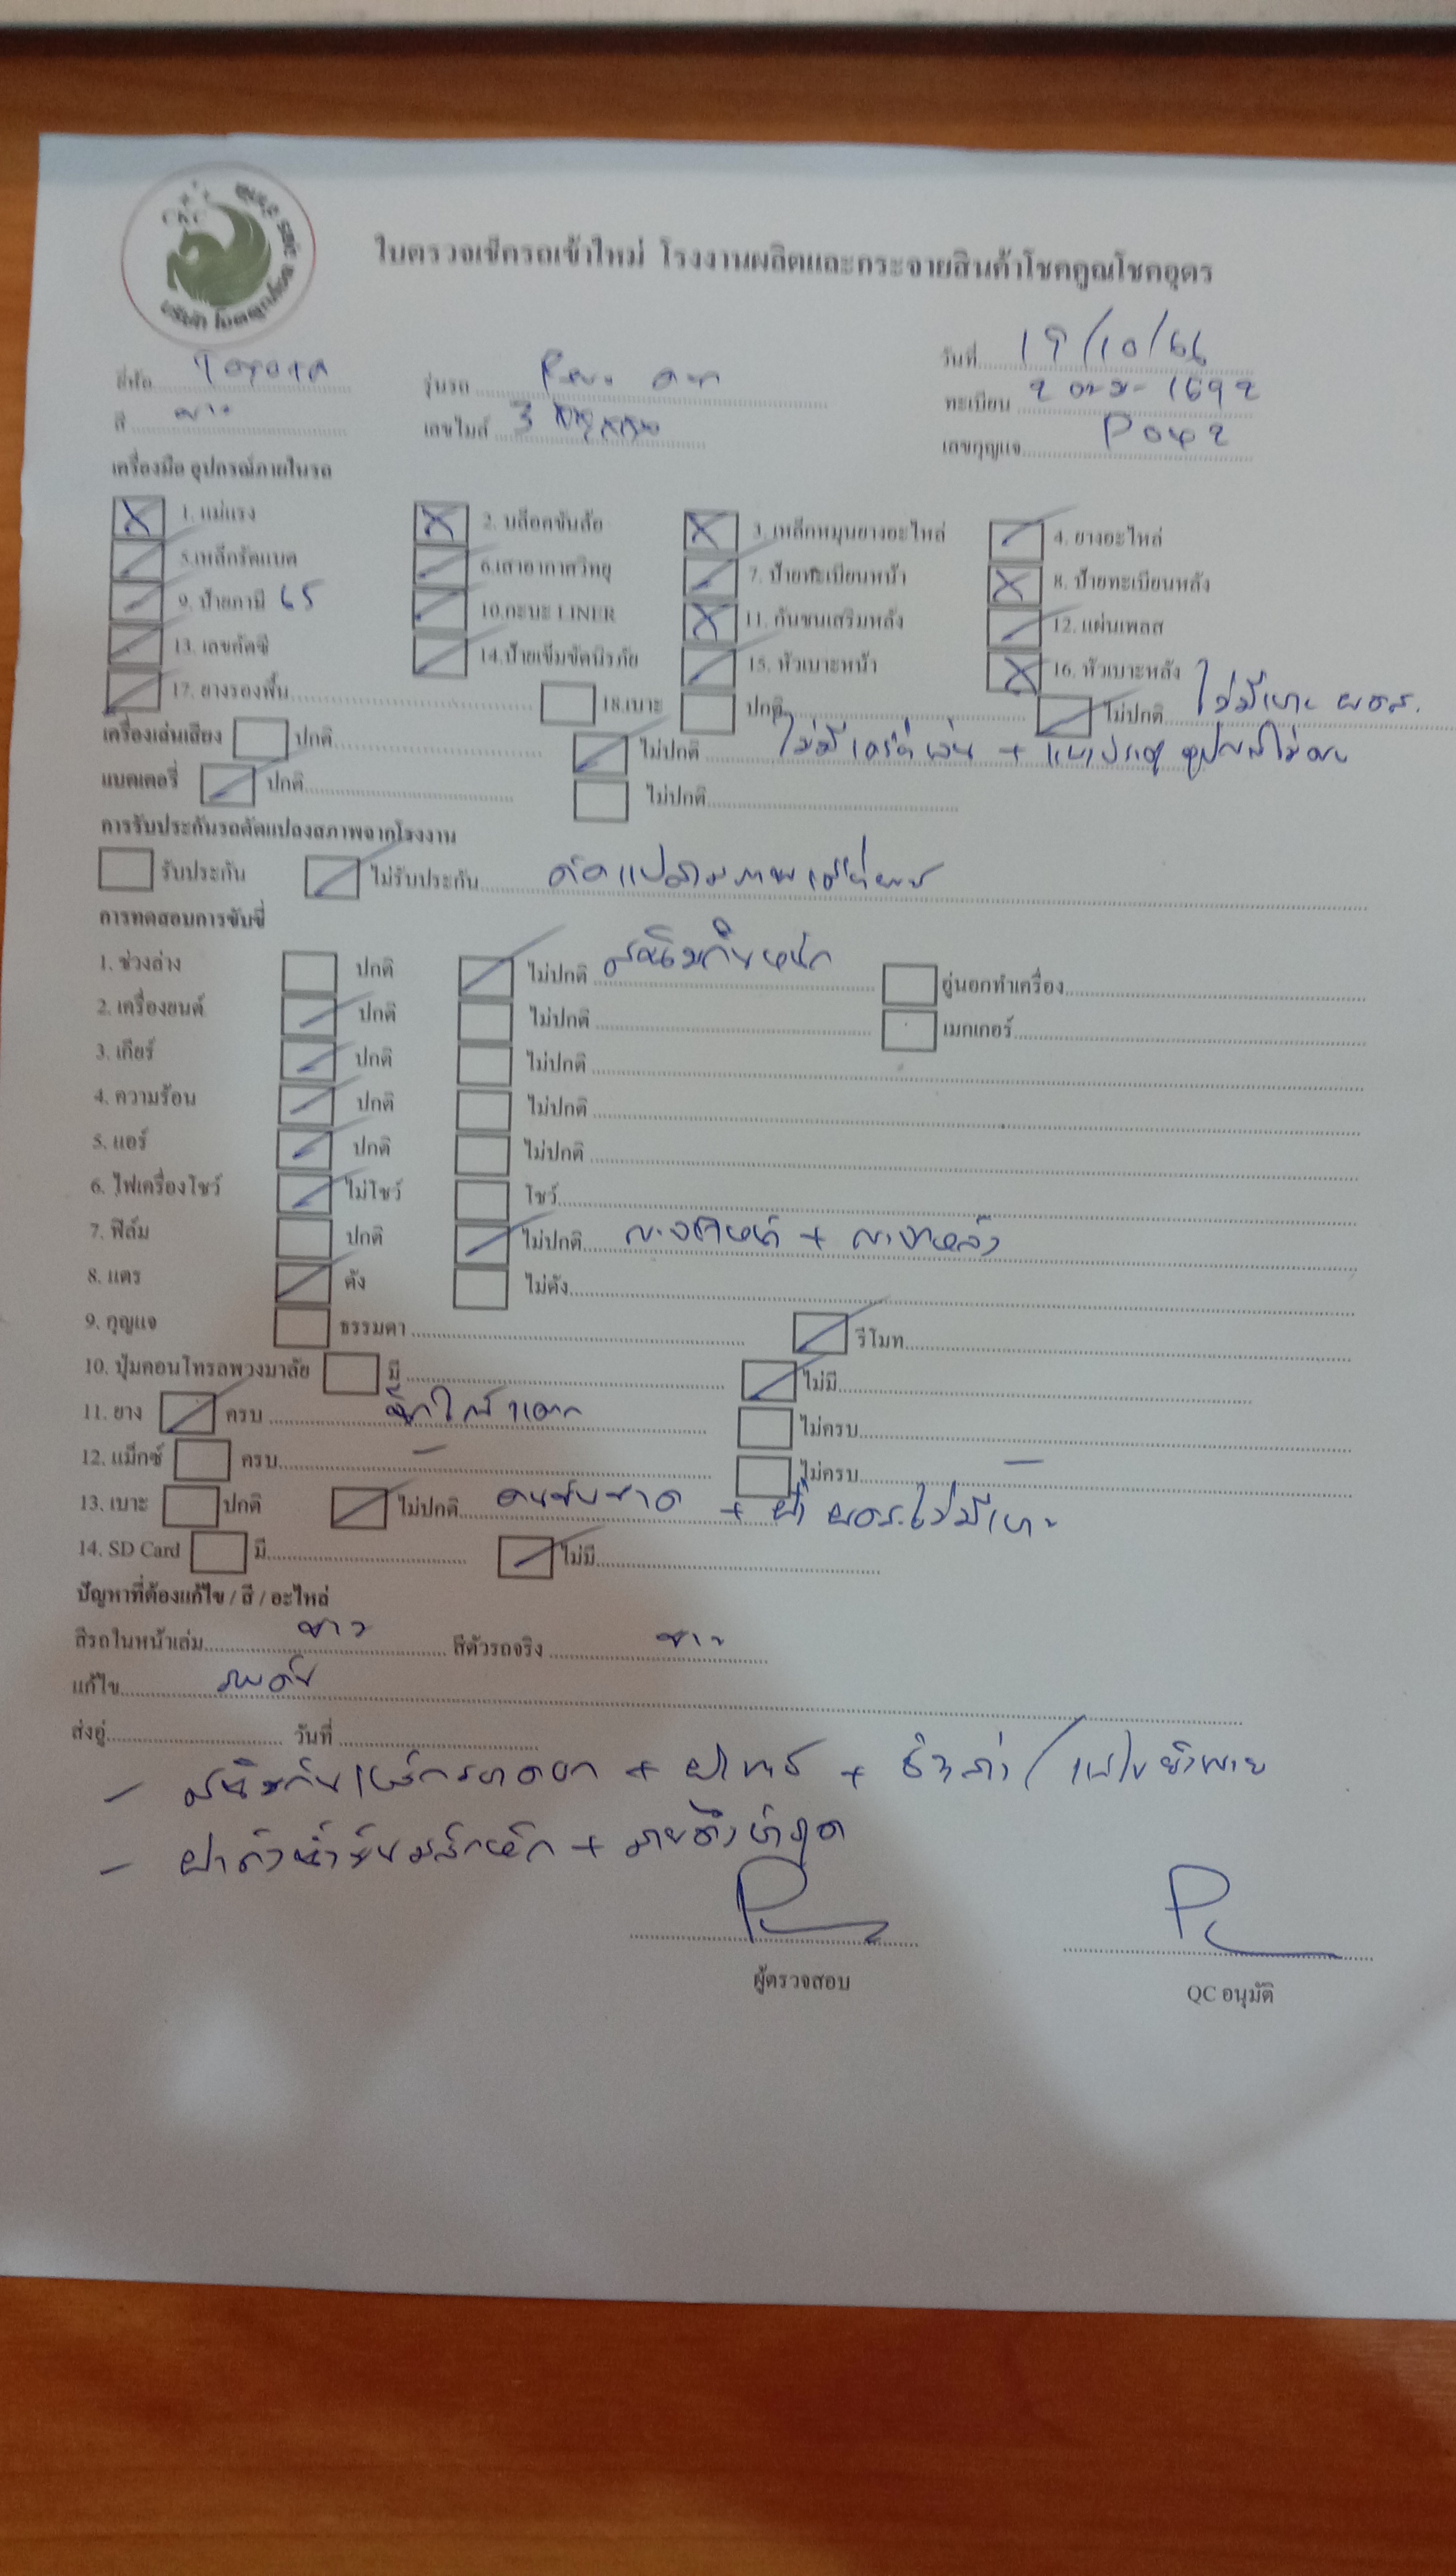 CKC
ใบตรวจเช็ครถเข้าใหม่ โรงงานผลิตและกระจายสินค้าโชคคูณโชคอุดร
ยี่ห้อ Toyota รุ่นรถ Revo วันที่ 19/10/66
สี ขาว เลขไมล์ 3 ทะเบียน 2 ขฆ-1692
เลขกุญแจ P042
เครื่องมือ อุปกรณ์ภายในรถ
1. แม่แรง 2. บล็อคขันล้อ 3. เหล็กหมุนยางอะไหล่ 4. ยางอะไหล่
5.เหล็กรัดแบต 6.เสาอากาศวิทยุ 7. ป้ายทะเบียนหน้า 8. ป้ายทะเบียนหลัง
9. ป้ายภาษี 65 10.กะบะ LINER 11. กันชนเสริมหลัง 12. แผ่นเพลส
13. เลขคัสซี 14.ป้ายเข็มขัดนิรภัย 15. หัวเบาะหน้า 16. หัวเบาะหลัง
17. ยางรองพื้น 18.เบาะ ปกติ ไม่ปกติ ไม่มีเบาะ ผดส.
เครื่องเล่นเสียง ปกติ ไม่ปกติ ไม่มีเครื่องเล่น + แผงประตู อุปกรณ์ไม่ครบ
แบตเตอรี่ ปกติ ไม่ปกติ
การรับประกันรถดัดแปลงสภาพจากโรงงาน
รับประกัน ไม่รับประกัน ดัดแปลงสภาพเครื่องยนต์
การทดสอบการขับขี่
1. ช่วงล่าง ปกติ ไม่ปกติ สนิมกินหนัก อู่นอกทำเครื่อง
2. เครื่องยนต์ ปกติ ไม่ปกติ เมกเกอร์
3. เกียร์ ปกติ ไม่ปกติ
4. ความร้อน ปกติ ไม่ปกติ
5. แอร์ ปกติ ไม่ปกติ
6. ไฟเครื่องโชว์ ไม่โชว์ โชว์
7. ฟิล์ม ปกติ ไม่ปกติ บังหน้า + หลัง
8. แตร ดัง ไม่ดัง
9. กุญแจ ธรรมดา รีโมท
10. ปุ่มคอนโทรลพวงมาลัย มี ไม่มี
11. ยาง ครบ ไม่ครบ
12. แม็กซ์ ครบ – ไม่ครบ –
13. เบาะ ปกติ ไม่ปกติ คนขับขาด + ผดส.ไม่มีเบาะ
14. SD Card มี ไม่มี
ปัญหาที่ต้องแก้ไข / สี / อะไหล่
สีรถในหน้าเล่ม ขาว สีตัวรถจริง ขาว
แก้ไข รอบคัน
ส่งอู่ วันที่
- สนิมกิน + +
- ฝาถังน้ำมันสลักหัก + สายดึงชำรุด
ผู้ตรวจสอบ QC อนุมัติ